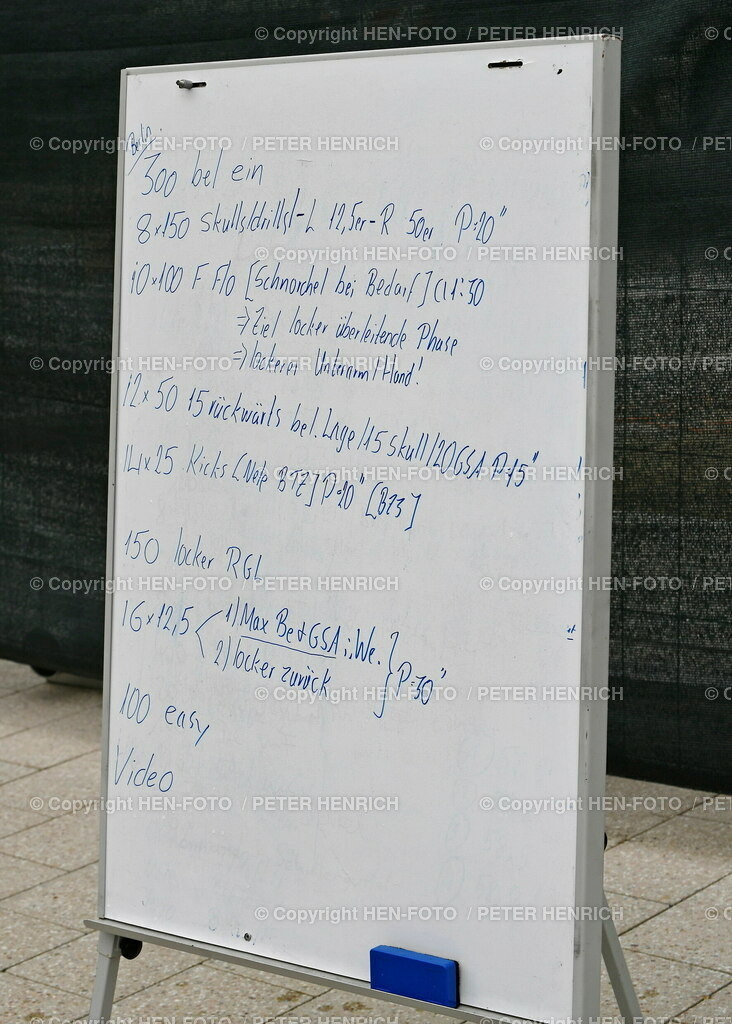 Berlin
300 bel ein
8x150 Skulls/drills/-L 12,5er-R 50er P=20"
10x100 F Flo [Schnorchel bei Bedarf] 1:30
⇒ Ziel locker überleitende Phase
⇒ lockerer Unterarm/Hand!
12x50 15 rückwärts bel. Lage/15 Skull/20 GSA P=15"
14x25 Kicks [Nele BTZ] P=20" [BZ3]
150 locker RGL
16x12,5 1) Max Be+GSA i. We. P=30"
2) locker zurück
100 easy
Video
© Copyright HEN-FOTO / PETER HENRICH